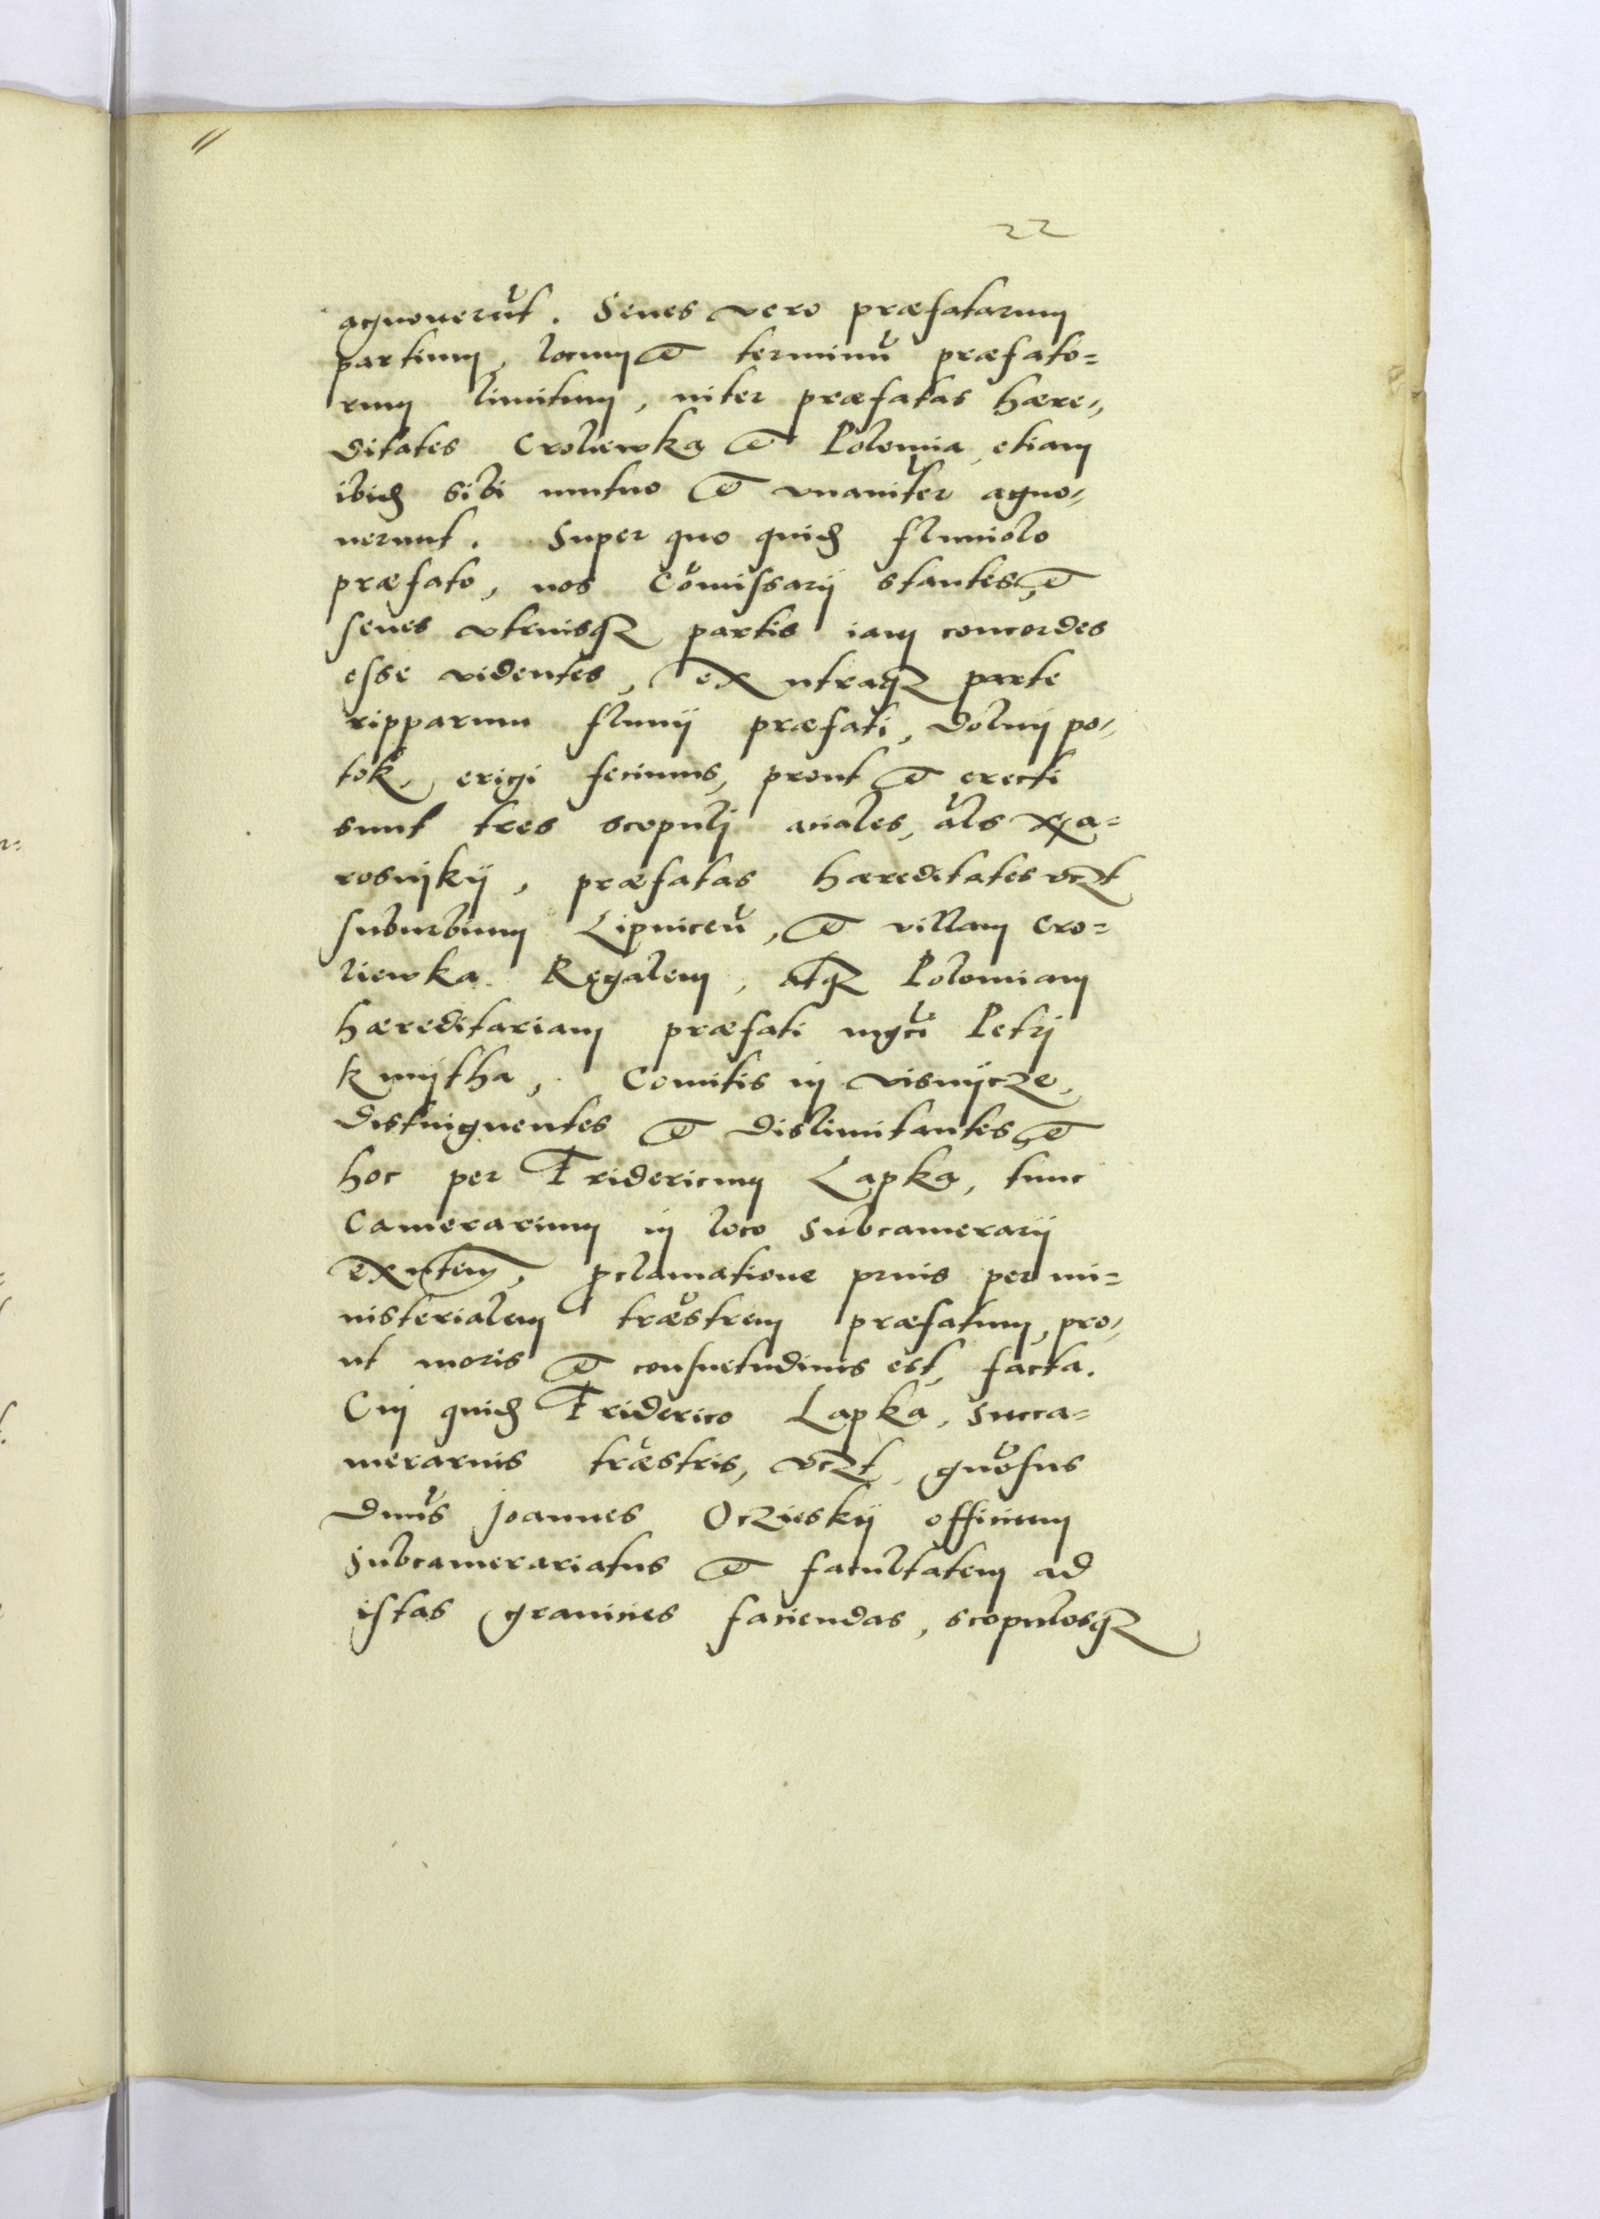 22
agnouerūt. Senes vero præfatarum
partium, locum et terminū præfato=
rum limitum, inter præfatas hære=
ditates Croliewka et Polomia, etiam
ibidē sibi mutuo et vnanitēr agno=
uerunt. Super quo quidē fluuiolo
præfato, nos Cōmissarij stantes, et
senes vtriusq₃ partis iam concordes
esse videntes, ex utraq₃ parte
ripparum fluuij præfati, dolnij po=
tok, erigi fecimus, prout et erecti
sunt tres scopuli aciales, āls na=
rosnijkij, præfatas hæreditates vczt
suburbium Lipniceū, et villam Cro=
liewka Regalem, atq₃ Polomiam
hæreditariam præfati mgci Petri
kmijtha, Comitis in visnijcze,
distinguentes et dislimitantes, et
hoc per Fridericum Lapka, tunc
Camerarium in loco Subcamerarij
exntem, pclamatione prius per mi=
nisterialem træstrem præfatum, pro=
ut moris et consuetudinis est, facta.
Cui quidē Friderico Lapka, succa=
merarius træstris, vczt gnōsus
Dnūs Joannes Oczieskij officium
Subcamerariatus et facultatem ad
istas granities faciendas, scopulosq₃